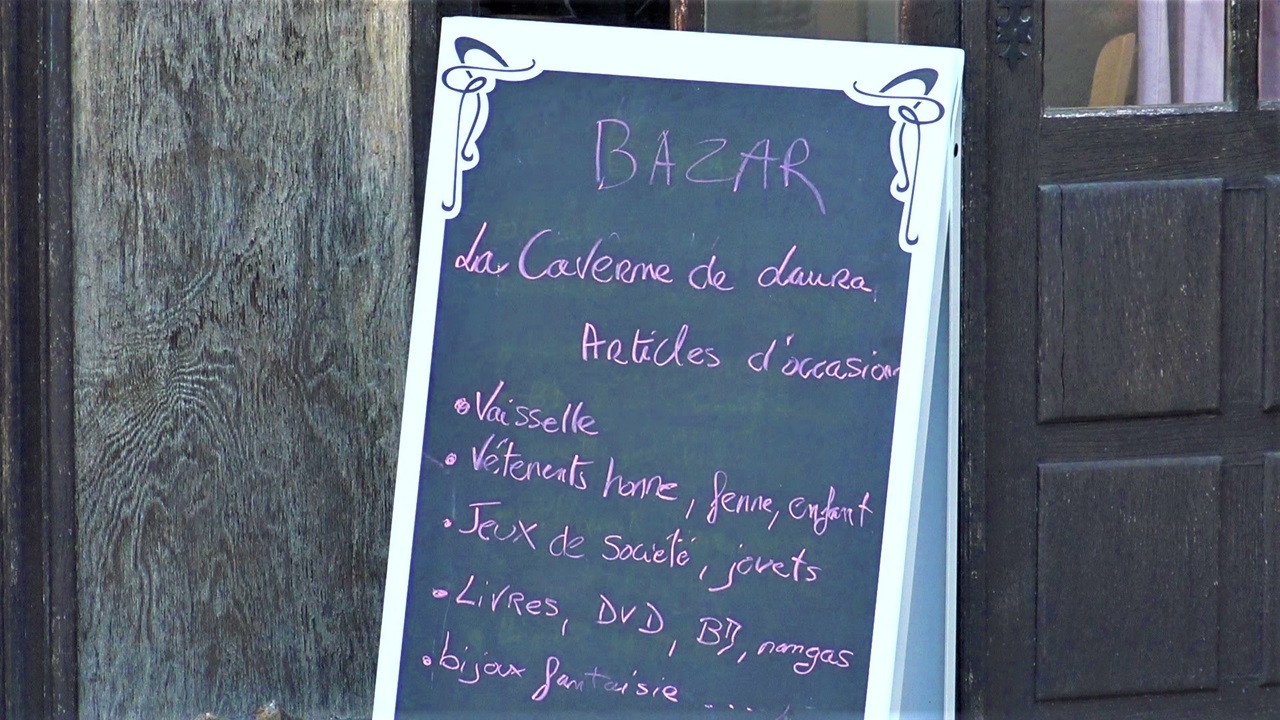 BAZAR
La Caverne de Laura
Articles d'occasion
• Vaisselle
• Vêtements homme, femme, enfant
• Jeux de société, jouets
• Livres, DVD, BD, mangas
• bijoux fantaisie ....